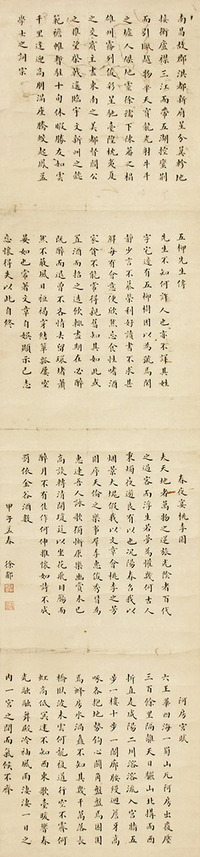 南昌故郡洪都新府星分翼軫地
接衡廬襟三江而帶五湖控蠻荊
而引甌越物華天寶龍光射牛斗
之墟人傑地靈徐孺下陳蕃之榻
雄州霧列俊彩星馳臺隍枕夷夏
之交賓主盡東南之美都督閻公
之雅望棨戟遙臨宇文新州之懿
範襜帷暫駐十旬休暇勝友如雲
千里逢迎高朋滿座騰蛟起鳳孟
學士之詞宗
五柳先生傳
先生不知何許人也亦不詳其姓
字宅邊有五柳樹因以為號焉閑
靜少言不慕榮利好讀書不求甚
解每有會意便欣然忘食性嗜酒
家貧不能常得親舊知其如此或
置酒而招之造飲輒盡期在必醉
既醉而退曾不吝情去留環堵蕭
然不蔽風日短褐穿結簞瓢屢空
晏如也常著文章自娛頗示己志
忘懷得失以此自終
春夜宴桃李園
夫天地者萬物之逆旅光陰者百代
之過客而浮生若夢為歡幾何古人
秉燭夜遊良有以也況陽春召我以
烟景大塊假我以文章會桃李之芳
園序天倫之樂事羣季俊秀皆為
惠連吾人詠歌獨慚康樂幽賞未已
高談轉清開瓊筵以坐花飛羽觴而
醉月不有佳作何伸雅懷如詩不成
罰依金谷酒數
甲子孟春 徐郙
阿房宮賦
六王畢四海一蜀山兀阿房出覆壓
三百餘里隔離天日驪山北構而西
折直走咸陽二川溶溶流入宮牆五
步一樓十步一閣廊腰縵迴簷牙高
啄各抱地勢鉤心鬥角盤盤焉囷囷
焉蜂房水渦矗不知其幾千萬落長
橋臥波未雲何龍複道行空不霽何
虹高低冥迷不知西東歌臺暖響春
光融融舞殿冷袖風雨淒淒一日之
內一宮之間而氣候不齊